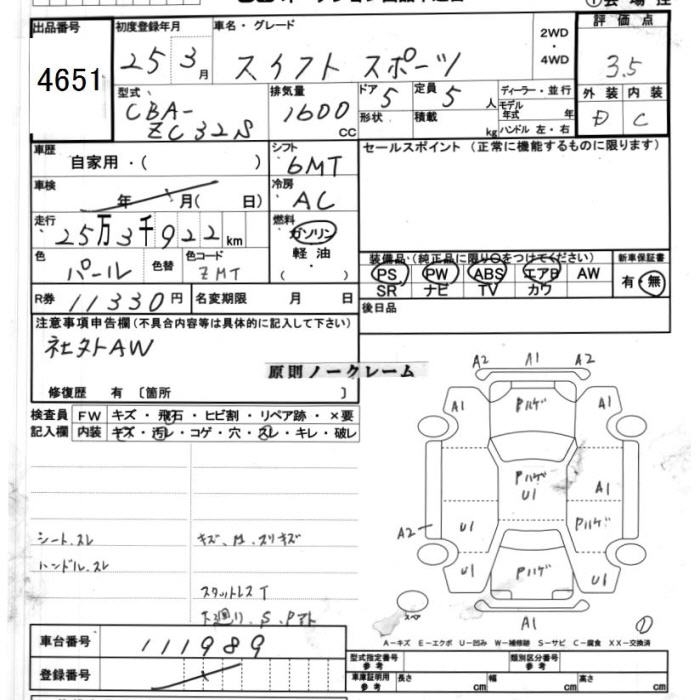 出品番号
4651
初度登録年月
25 3月
車名・グレード
スイフト スポーツ
2WD
・
4WD
評価点
3.5
型式
CBA-
ZC32S
排気量
1600
CC
ドア
5
定員
5人
形状
積載
kg
ディーラー・並行
モデル
年式
年
ハンドル 左・右
外装
内装
D
C
車歴
自家用・( )
シフト
6MT
セールスポイント(正常に機能するものに限ります)
車検
年 月( 日)
冷房
AC
走行
25万3千922km
燃料
ガソリン
軽油
( )
色
パール
色替
色コード
ZMT
装備品(純正品に限り○をつけてください)
PS PW ABS エアB AW
SR ナビ TV カワ
新車保証書
有・無
R券 11330円
名変期限 月 日
後日品
注意事項申告欄(不具合内容等は具体的に記入して下さい)
社外AW
原則ノークレーム
修復歴 有〔箇所 〕
検査員
記入欄
FW キズ・飛石・ヒビ割・リペア跡・×要
内装 キズ・汚レ・コゲ・穴・スレ・キレ・破レ
シート.スレ
ハンドル.スレ
スタットレスT
A2 A1 A2
A1
Pハゲ
A1
Pハゲ
U1
A1
A2
U1
Pハゲ
U1
Pハゲ
U1
スペア
A1
A-キズ E-エクボ U-凹み W-補修跡 S-サビ C-腐食 XX-交換済
車台番号
111989
登録番号
型式指定番号
参考
類別区分番号
参考
車庫証明用
参考
長さ cm
幅 cm
高さ cm